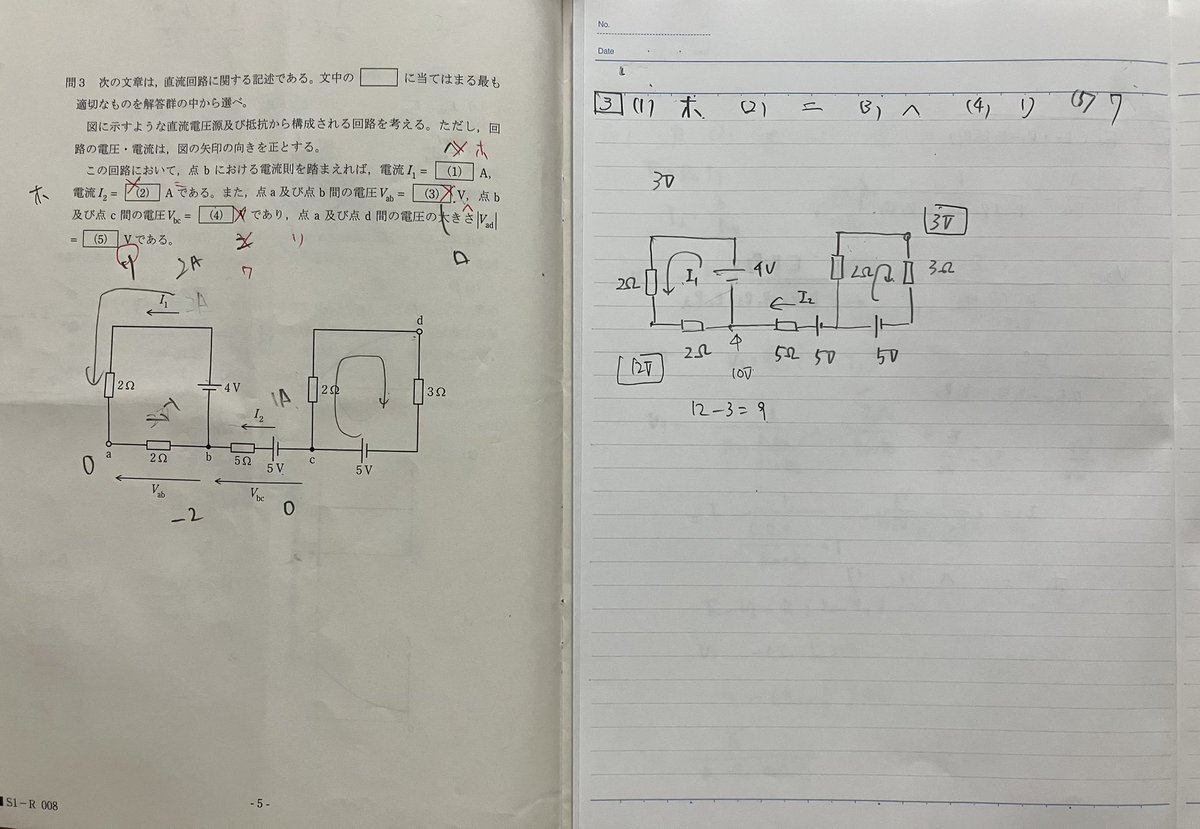 問3 次の文章は，直流回路に関する記述である。文中の に当てはまる最も
適切なものを解答群の中から選べ。
図に示すような直流電圧源及び抵抗から構成される回路を考える。ただし，回
路の電圧・電流は，図の矢印の向きを正とする。
ヘ ホ
この回路において，点bにおける電流則を踏まえれば，電流I₁= (1) A，
ホ
電流I₂= (2) Aである。また，点a及び点b間の電圧Vab= (3) V，点b
及び点c間の電圧Vbc= (4) Vであり，点a及び点d間の電圧の大きさ|Vad|
= (5) Vである。
2A
リ
ワ
ロ
I₁
3A
d
2Ω
4V
1A
2Ω
3Ω
I₂
0
a
2Ω
b
5Ω
5V
c
5V
Vab
Vbc
-2
0
S1-R 008
-5-
No.
Date
3 (1) ホ (2) ニ (3) ヘ (4) リ (5) ワ
3V
3V
2Ω
I₁
4V
2Ω
3Ω
I₂
2Ω
4
5Ω
5V
5V
12V
10V
12-3=9